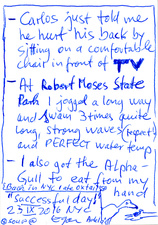 - Carlos just told me
he hurt his back by
sitting on a comfortable
chair in front of TV
- At Robert Moses State
Park I jogged a long way
and swam 3 times quite
long, strong waves (repeat)
and PERFECT water temp
- I also got the Alpha-
Gull to eat from my
(Back in NYC late october) hand
"Successful day!"
23 IX 2016 NYC